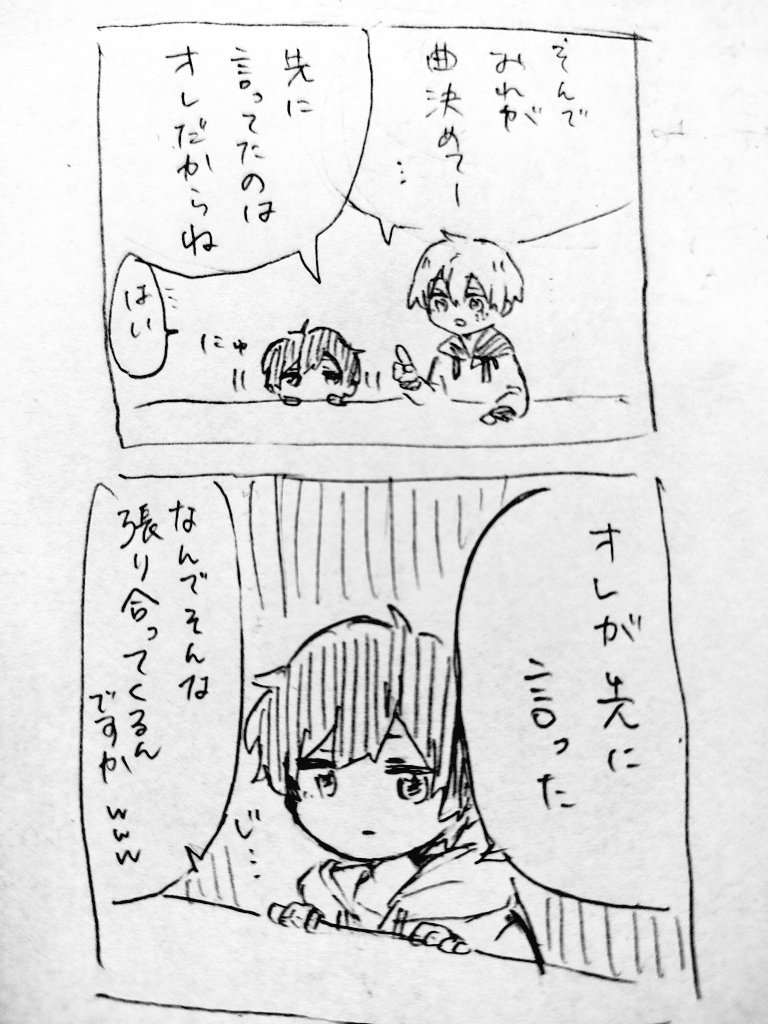 そんで
おれが
曲決めてー
…
先に
言ってたのは
オレだからね
…はい
にゅ
オレが先に
言った
なんでそんな
張り合ってくるん
ですかwww
じ…